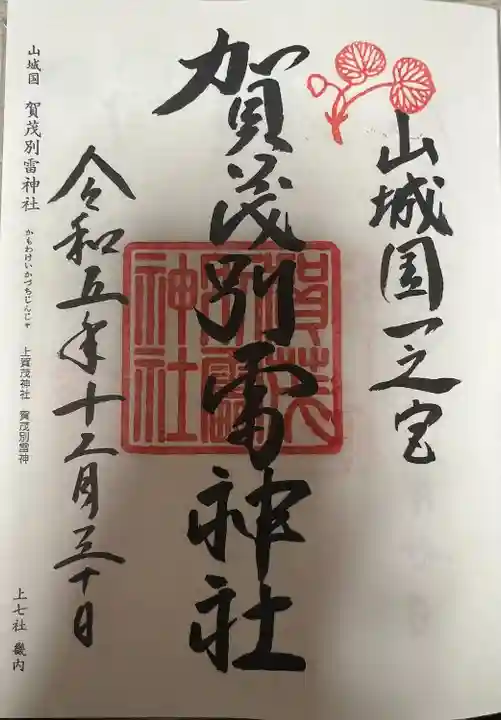 山城国一之宮
賀茂別雷神社
賀茂
別雷
神社
令和五年十二月三十日
山城国 賀茂別雷神社 かもわけいかづちじんじゃ 上賀茂神社 賀茂別雷神
上七社 畿内